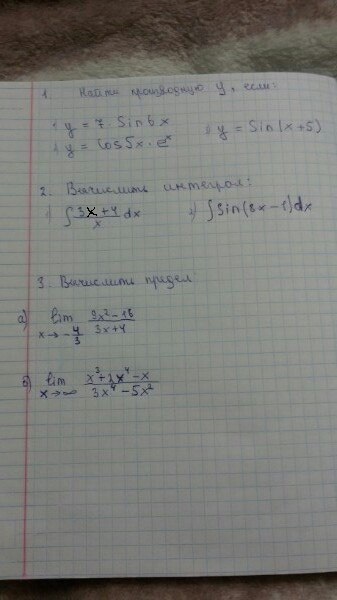 1. Найти производную y, если:
1) y = 7 · Sin 6x
3) y = Sin(x+5)
2) y = Cos 5x · eˣ
2. Вычислить интеграл:
1) ∫ (3x+4)/x dx
2) ∫ Sin(8x-1)dx
3. Вычислить предел
а) lim x→-4/3 (9x²-16)/(3x+4)
б) lim x→∞ (x³+2x⁴-x)/(3x⁴-5x²)